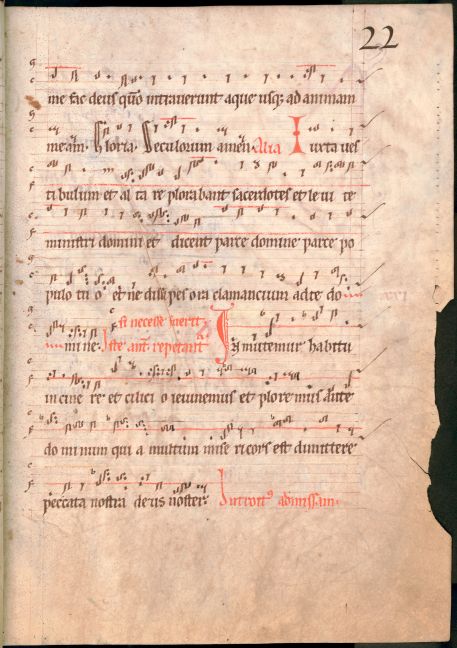 22
me fac deus quo intraverunt aque usq; ad animam
meam. Gloria. Seculorum amen. Alia Iuxta ves
tibulum et al ta re plorabant sacerdotes et le vi te
ministri domini et dicent parce domine parce po
pulo tu o et ne dissipes ora clamancium ad te do
si necesse fuerit
mine. Iste ant repetant Inmutemur habitu
in cine re et cilici o ieiunemus et plore mus ante
do mi num qui a multum mise ricors est dimittere
peccata nostra deus noster. Introit ad missam.